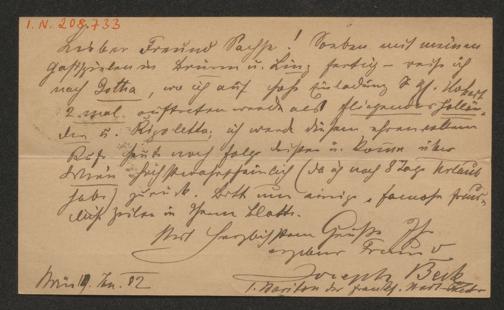 I.N. 208.733
Lieber Freund Sachse! Soeben mit meinen
Gastspielen in Brünn u. Linz fertig – reise ich
nach Gotha, wo ich auf hohe Einladung
2 mal auftreten werde als fliegender Hollän-
der u. Rigoletto, ich werde diesem ehrenvollen
Rufe heute noch folge leisten u. komme über
Wien höchstwahrscheinlich (da ich noch 8 Tage Urlaub
habe) zurück. Bitte um einige famose freund-
liche Zeilen in Ihrem Blatte.
Mit herzlichstem Gruße Ihr
ergebener Freund
Joseph Beck
I. Bariton der Frankf. Stadt-Theater
Wien 82